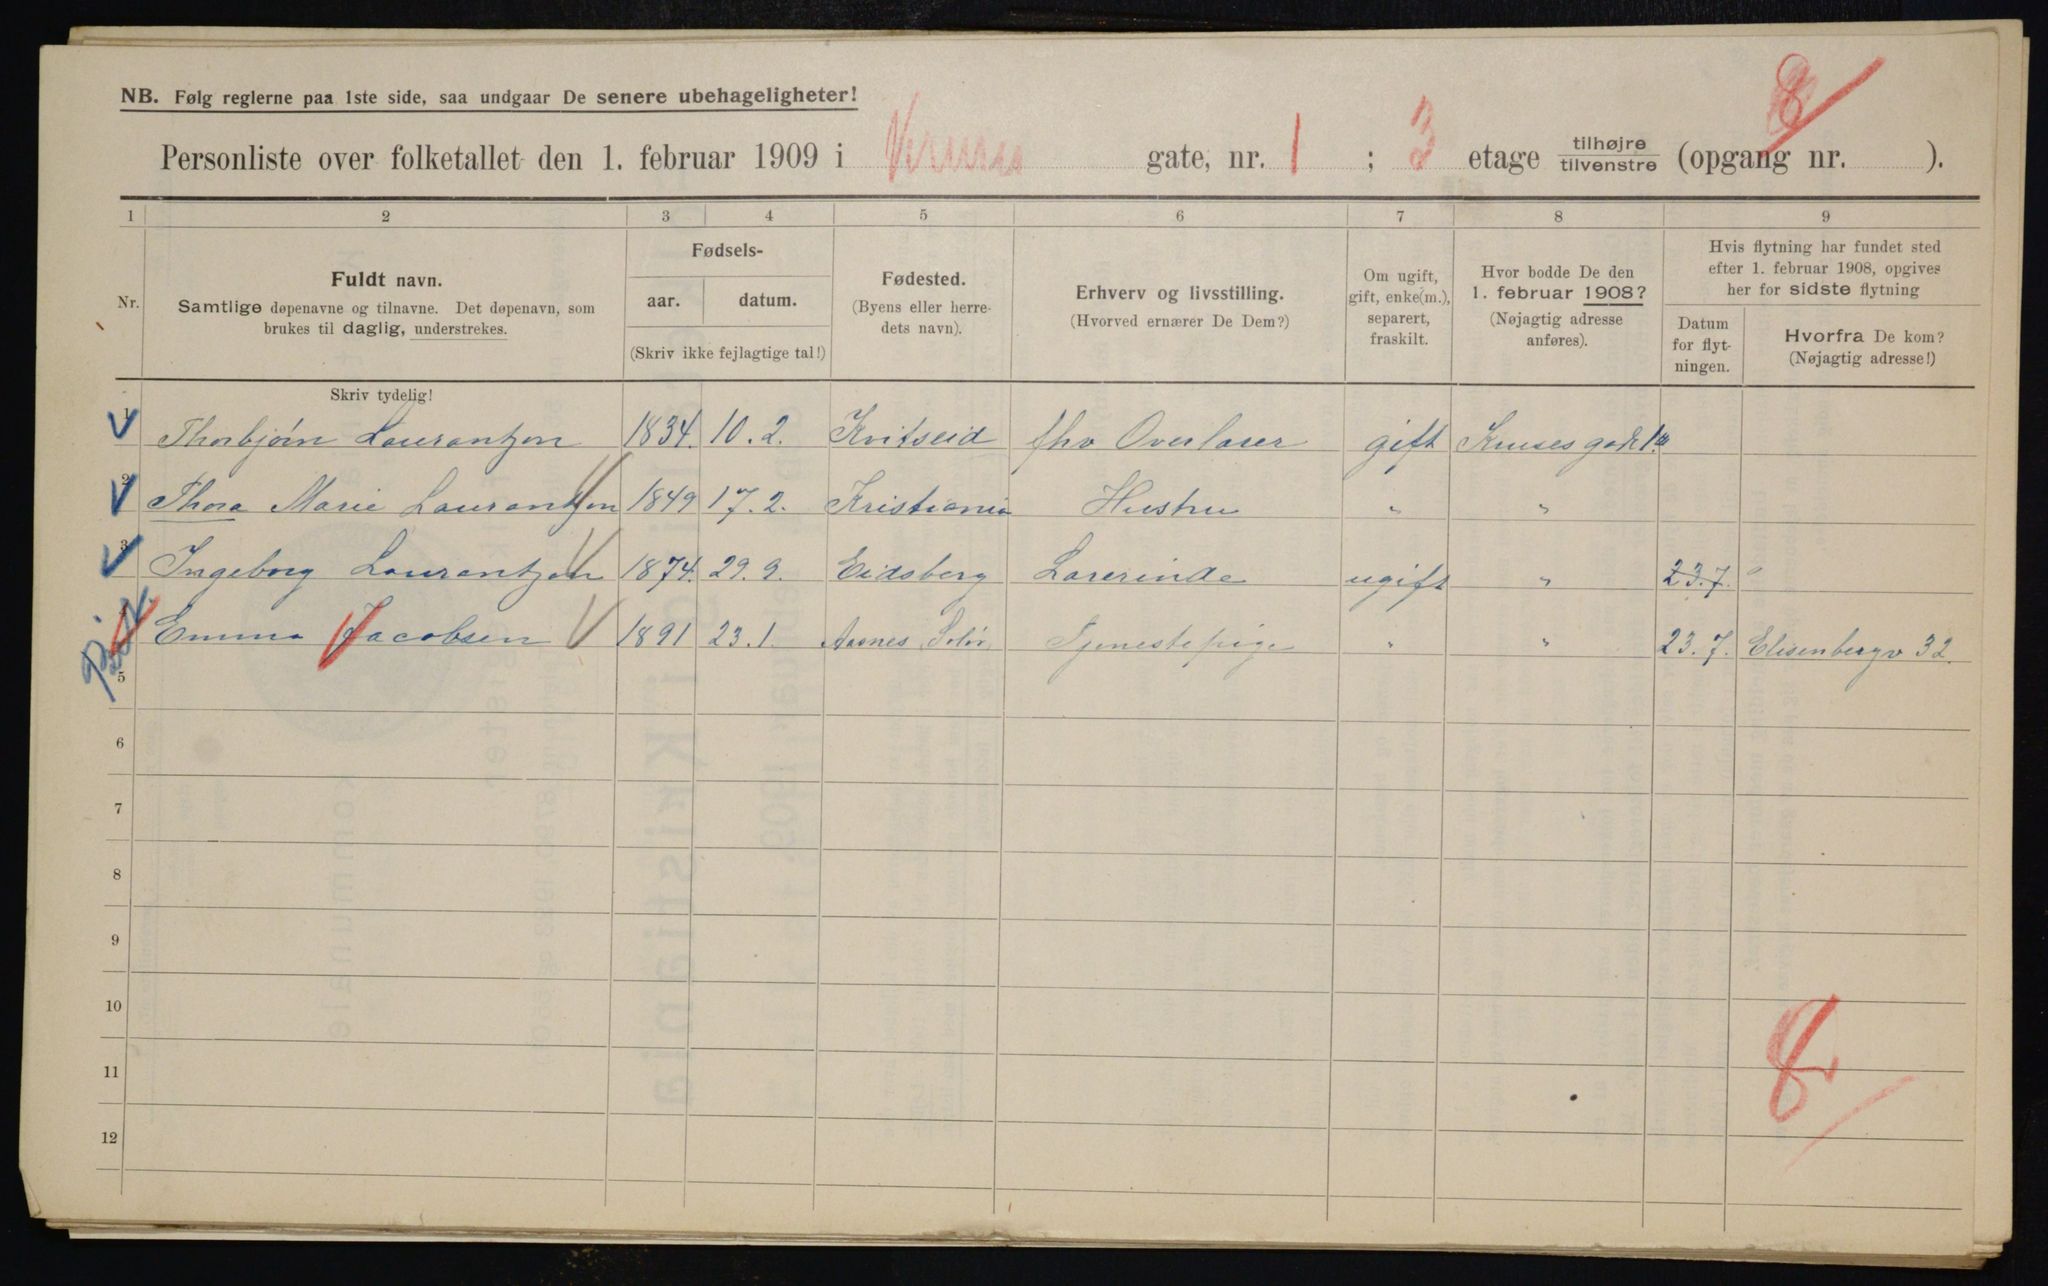 NB. Følg reglerne paa 1ste side, saa undgaar De senere ubehageligheter!
Personliste over folketallet den 1. februar 1909 i gate, nr. 1 ; 3 etage tilhøjre tilvenstre (opgang nr. ).
8
1 2 3 4 5 6 7 8 9
Nr.
Fuldt navn.
Samtlige døpenavne og tilnavne. Det døpenavn, som
brukes til daglig, understrekes.
Skriv tydelig!
Fødsels-
aar. datum.
(Skriv ikke fejlagtige tal!)
Fødested.
(Byens eller herre-
dets navn).
Erhverv og livsstilling.
(Hvorved ernærer De Dem?)
Om ugift,
gift, enke(m.),
separert,
fraskilt.
Hvor bodde De den
1. februar 1908?
(Nøjagtig adresse
anføres).
Hvis flytning har fundet sted
efter 1. februar 1908, opgives
her for sidste flytning
Datum
for flyt-
ningen.
Hvorfra De kom?
(Nøjagtig adresse!)
1 Thorbjörn Laurantzon 1834. 10. 2. Kvitseid fhv Overlærer gift Kruses gade 1
2 Thora Marie Laurantzon 1849 17. 2. Kristiania Hustru " "
3 Ingeborg Laurantzon 1874. 29. 9. Eidsberg Lærerinde ugift " 23. 7. "
4 Emma Jacobsen 1891 23. 1. Aasnes, Solør Tjenestepige " " 23. 7. Elisenbergv 32.
5
6
7
8
9
10
11
12
8